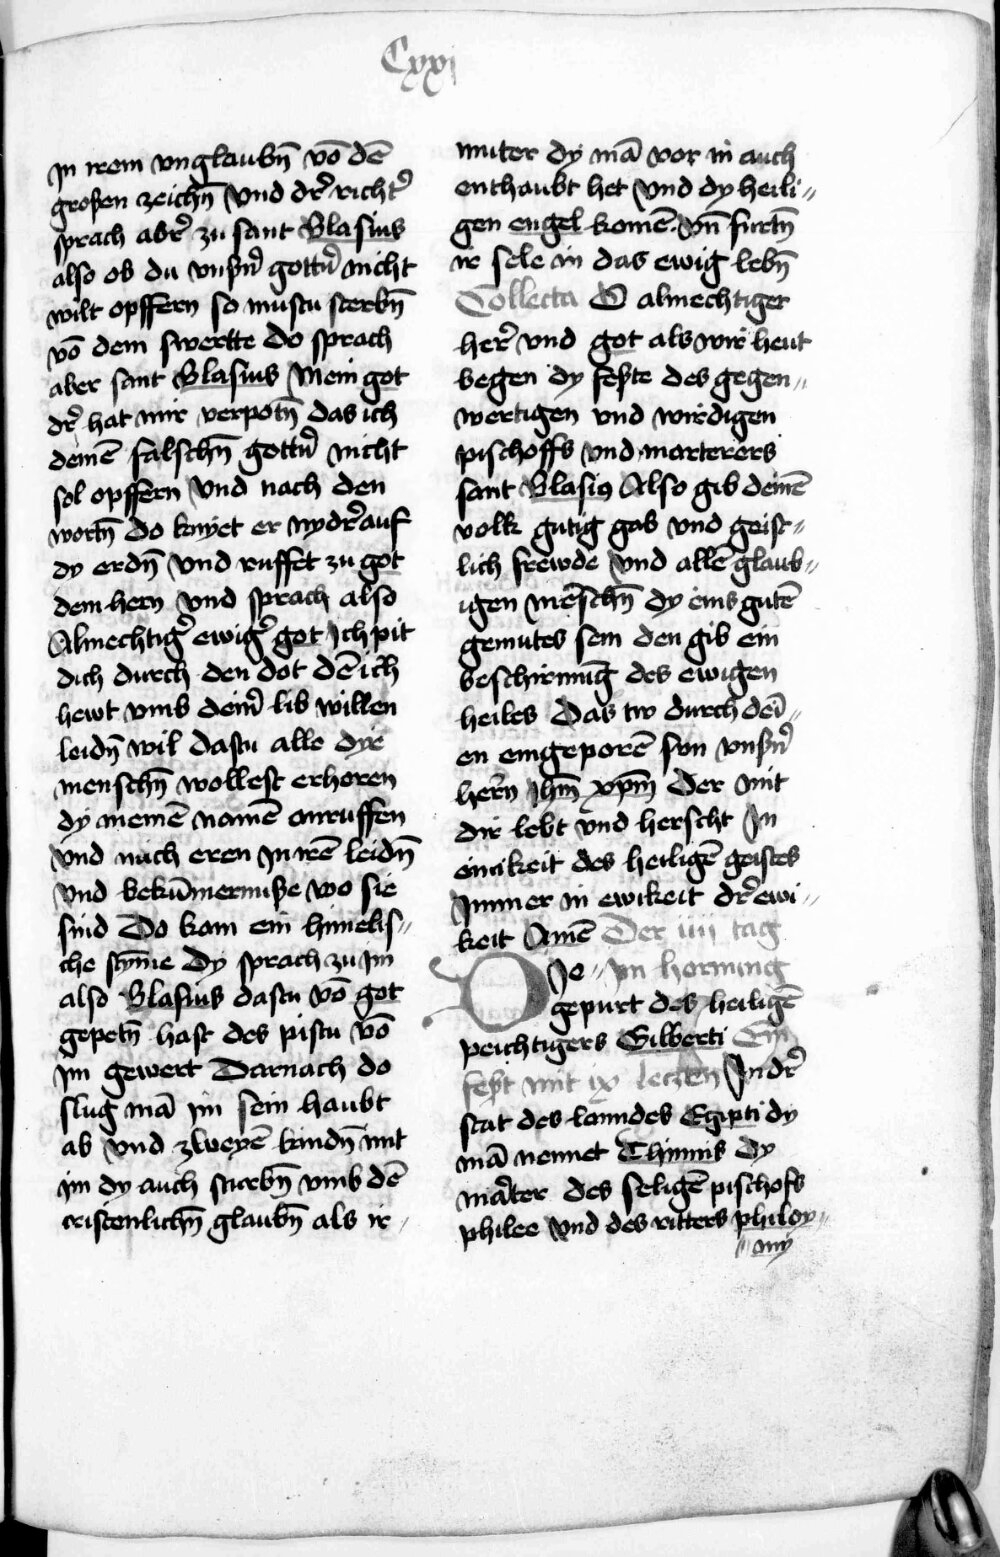 Cxxj
Jn irem vnglaubn̄ vō dē
großen zeichn̄ Vnd dr̄ richt̄
sprach abr̄ zu sant Blasius
also ob du vnsn̄ gottn̄ nicht
wilt opffern so mustu sterbn̄
vō dem swertte Do sprach
aber sant Blasius Mein got
dr̄ hat mir verpotn̄ das ich
deinē falschn̄ gottn̄ nicht
sol opffern Vnd nach den
wortn̄ do knyet er nydr̄ auf
dy erdn̄ Vnd ruffet zu got
dem hern Vnd sprach also
Almechtiḡ ewiḡ got Ich pit
dich durch den dot dē ich
hewt vmb dein̄ lib willen
leidn̄ wil dastu alle dye
menschn̄ wollest erhoren
dy meinē namē anruffen
Vnd mich eren Jn irē leidn̄
Vnd bekūmernuße wo sie
sind Do kam ein himelis„
che stȳme Dy sprach zu im
also Blasius dastu vō got
gepetn̄ hast des pistu vō
im gewert Darnach do
slug mā im sein haubt
ab Vnd zweyē kindn̄ mit
im dy auch sturbn̄ vmb dē
cristenlichn̄ glaubn̄ als ir„
muter dy mā vor in auch
enthaubt het Vnd dy heili„
gen engel komē vn̄ furtn̄
ir sele in das ewig lebn̄
Collecta O almechtiger
her̄ vnd got als wir heut
begen dy feste des gegen„
wertigen vnd wirdigen
pischoffs Vnd marterers
sant Blasi9 Also gib deinē
volk gutig gab Vnd geist„
lich frewde Vnd allē glaub„
igen mēschn̄ dy eins gutē
gemutes sein den gib ein
beschirmūg des ewigen
heiles Das tw durch dei„
en eingeporē sun vnsn̄
hern̄ Jhm̄ xpm̄ Der mit
dir lebt Vnd herscht Jn
einikeit des heiligē geistes
Jmmer in ewikeit dr̄ ewi„
keit Amē Der iiij tag
DJe„ Jm hornung
gepurt des heiligē
peichtigers Gilberti Ein
fest mit ix leczen Jn dr̄
stat des lanndes Egipti dy
mā nennet Thimis Dy
mart̄er des seligē pischofs
philee Vnd des ritters philoy„
„mij